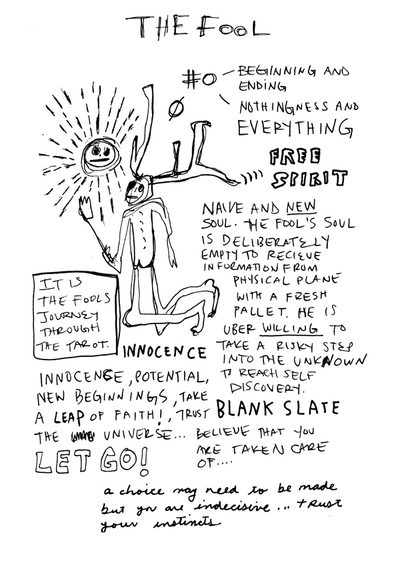 THE FOOL
#0 - BEGINNING AND
ENDING
NOTHINGNESS AND
EVERYTHING
FREE
SPIRIT
NAIVE AND NEW
SOUL. THE FOOL'S SOUL
IS DELIBERATELY
EMPTY TO RECIEVE
INFORMATION FROM
PHYSICAL PLANE
WITH A FRESH
PALLET. HE IS
UBER WILLING TO
TAKE A RISKY STEP
INTO THE UNKNOWN
TO REACH SELF
DISCOVERY.
IT IS
THE FOOLS
JOURNEY
THROUGH
THE TAROT.
INNOCENCE
INNOCENCE, POTENTIAL,
NEW BEGINNINGS, TAKE
A LEAP OF FAITH!, TRUST
THE UNIVERSE...
LET GO!
BLANK SLATE
BELIEVE THAT YOU
ARE TAKEN CARE
OF....
a choice may need to be made
but you are indecisive... trust
your instincts